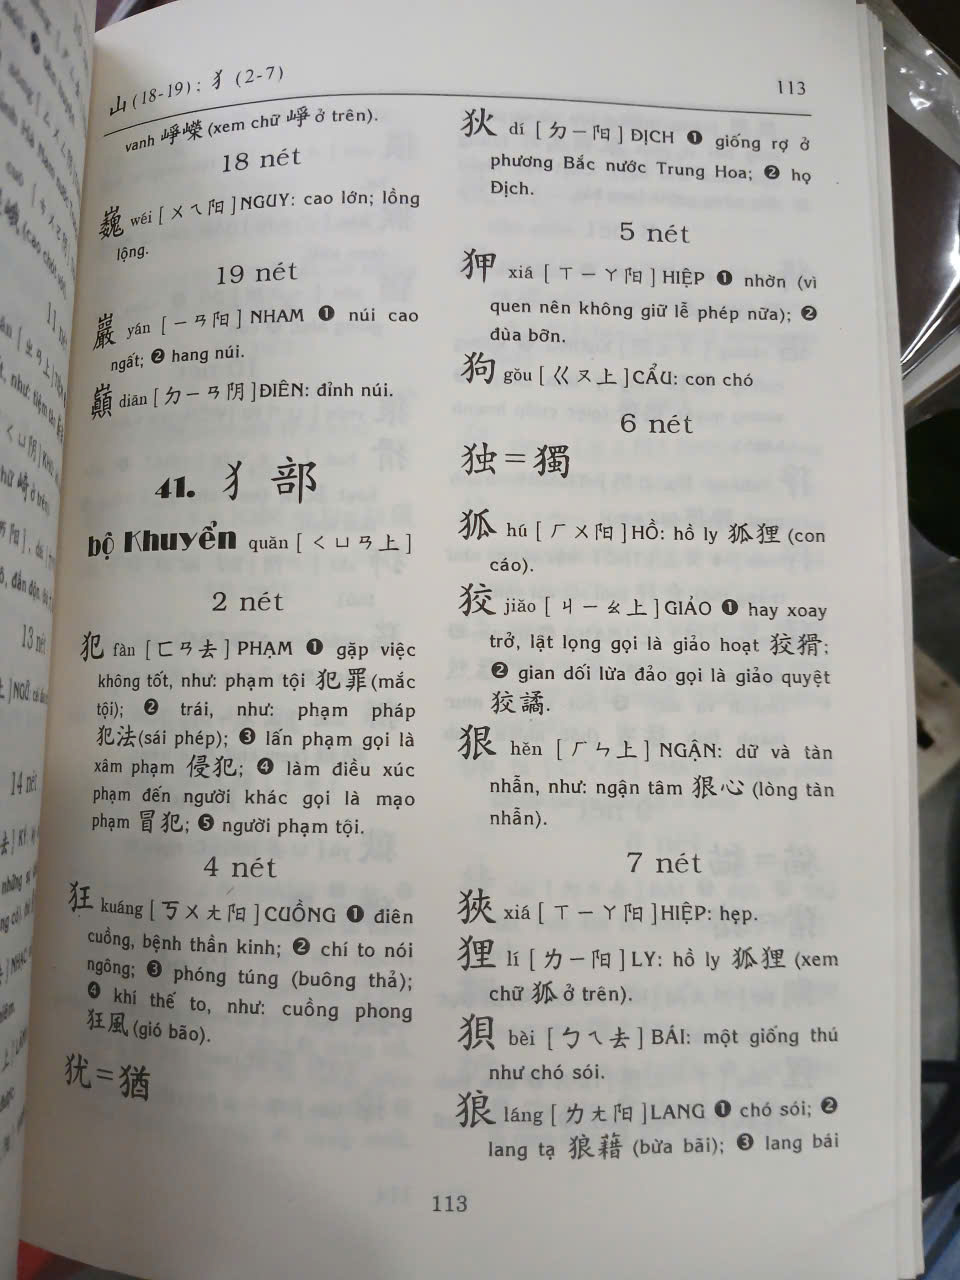 山(18-19); 犭(2-7)
113
vanh 崢嶸(xem chữ 崢ở trên).
18 nét
巍 wéi [ㄨㄟ阳]NGUY: cao lớn; lồng
lộng.
19 nét
巖 yán [ㄧㄢ阳] NHAM ❶ núi cao
ngất; ❷ hang núi.
巔 diān [ㄉㄧㄢ阴]ĐIÊN: đỉnh núi.
41. 犭部
bộ Khuyển quăn [ㄑㄩㄢ上]
2 nét
犯 fàn [ㄈㄢ去] PHẠM ❶ gặp việc
không tốt, như: phạm tội 犯罪(mắc
tội); ❷ trái, như: phạm pháp
犯法(sái phép); ❸ lấn phạm gọi là
xâm phạm 侵犯; ❹ làm điều xúc
phạm đến người khác gọi là mạo
phạm 冒犯; ❺ người phạm tội.
4 nét
狂 kuáng [ㄎㄨㄤ阳]CUỒNG ❶ điên
cuồng, bệnh thần kinh; ❷ chí to nói
ngông; ❸ phóng túng (buông thả);
❹ khí thế to, như: cuồng phong
狂風(gió bão).
犹=猶
狄 dí [ㄉㄧ阳]ĐỊCH ❶ giống rợ ở
phương Bắc nước Trung Hoa; ❷ họ
Địch.
5 nét
狎 xiá [ㄒㄧㄚ阳]HIỆP ❶ nhờn (vì
quen nên không giữ lễ phép nữa); ❷
đùa bỡn.
狗 gǒu [ㄍㄡ上]CẨU: con chó
6 nét
独=獨
狐 hú [ㄏㄨ阳]HỒ: hồ ly 狐狸(con
cáo).
狡 jiǎo [ㄐㄧㄠ上]GIẢO ❶ hay xoay
trở, lật lọng gọi là giảo hoạt 狡猾;
❷ gian dối lừa đảo gọi là giảo quyệt
狡譎.
狠 hěn [ㄏㄣ上] NGẬN: dữ và tàn
nhẫn, như: ngận tâm 狠心(lòng tàn
nhẫn).
7 nét
狹 xiá [ㄒㄧㄚ阳]HIỆP: hẹp.
狸 lí [ㄌㄧ阳]LY: hồ ly 狐狸(xem
chữ 狐ở trên).
狽 bèi [ㄅㄟ去] BÁI: một giống thú
như chó sói.
狼 láng [ㄌㄤ阳]LANG ❶ chó sói; ❷
lang tạ 狼藉 (bừa bãi); ❸ lang bái
113
13 nét
14 nét